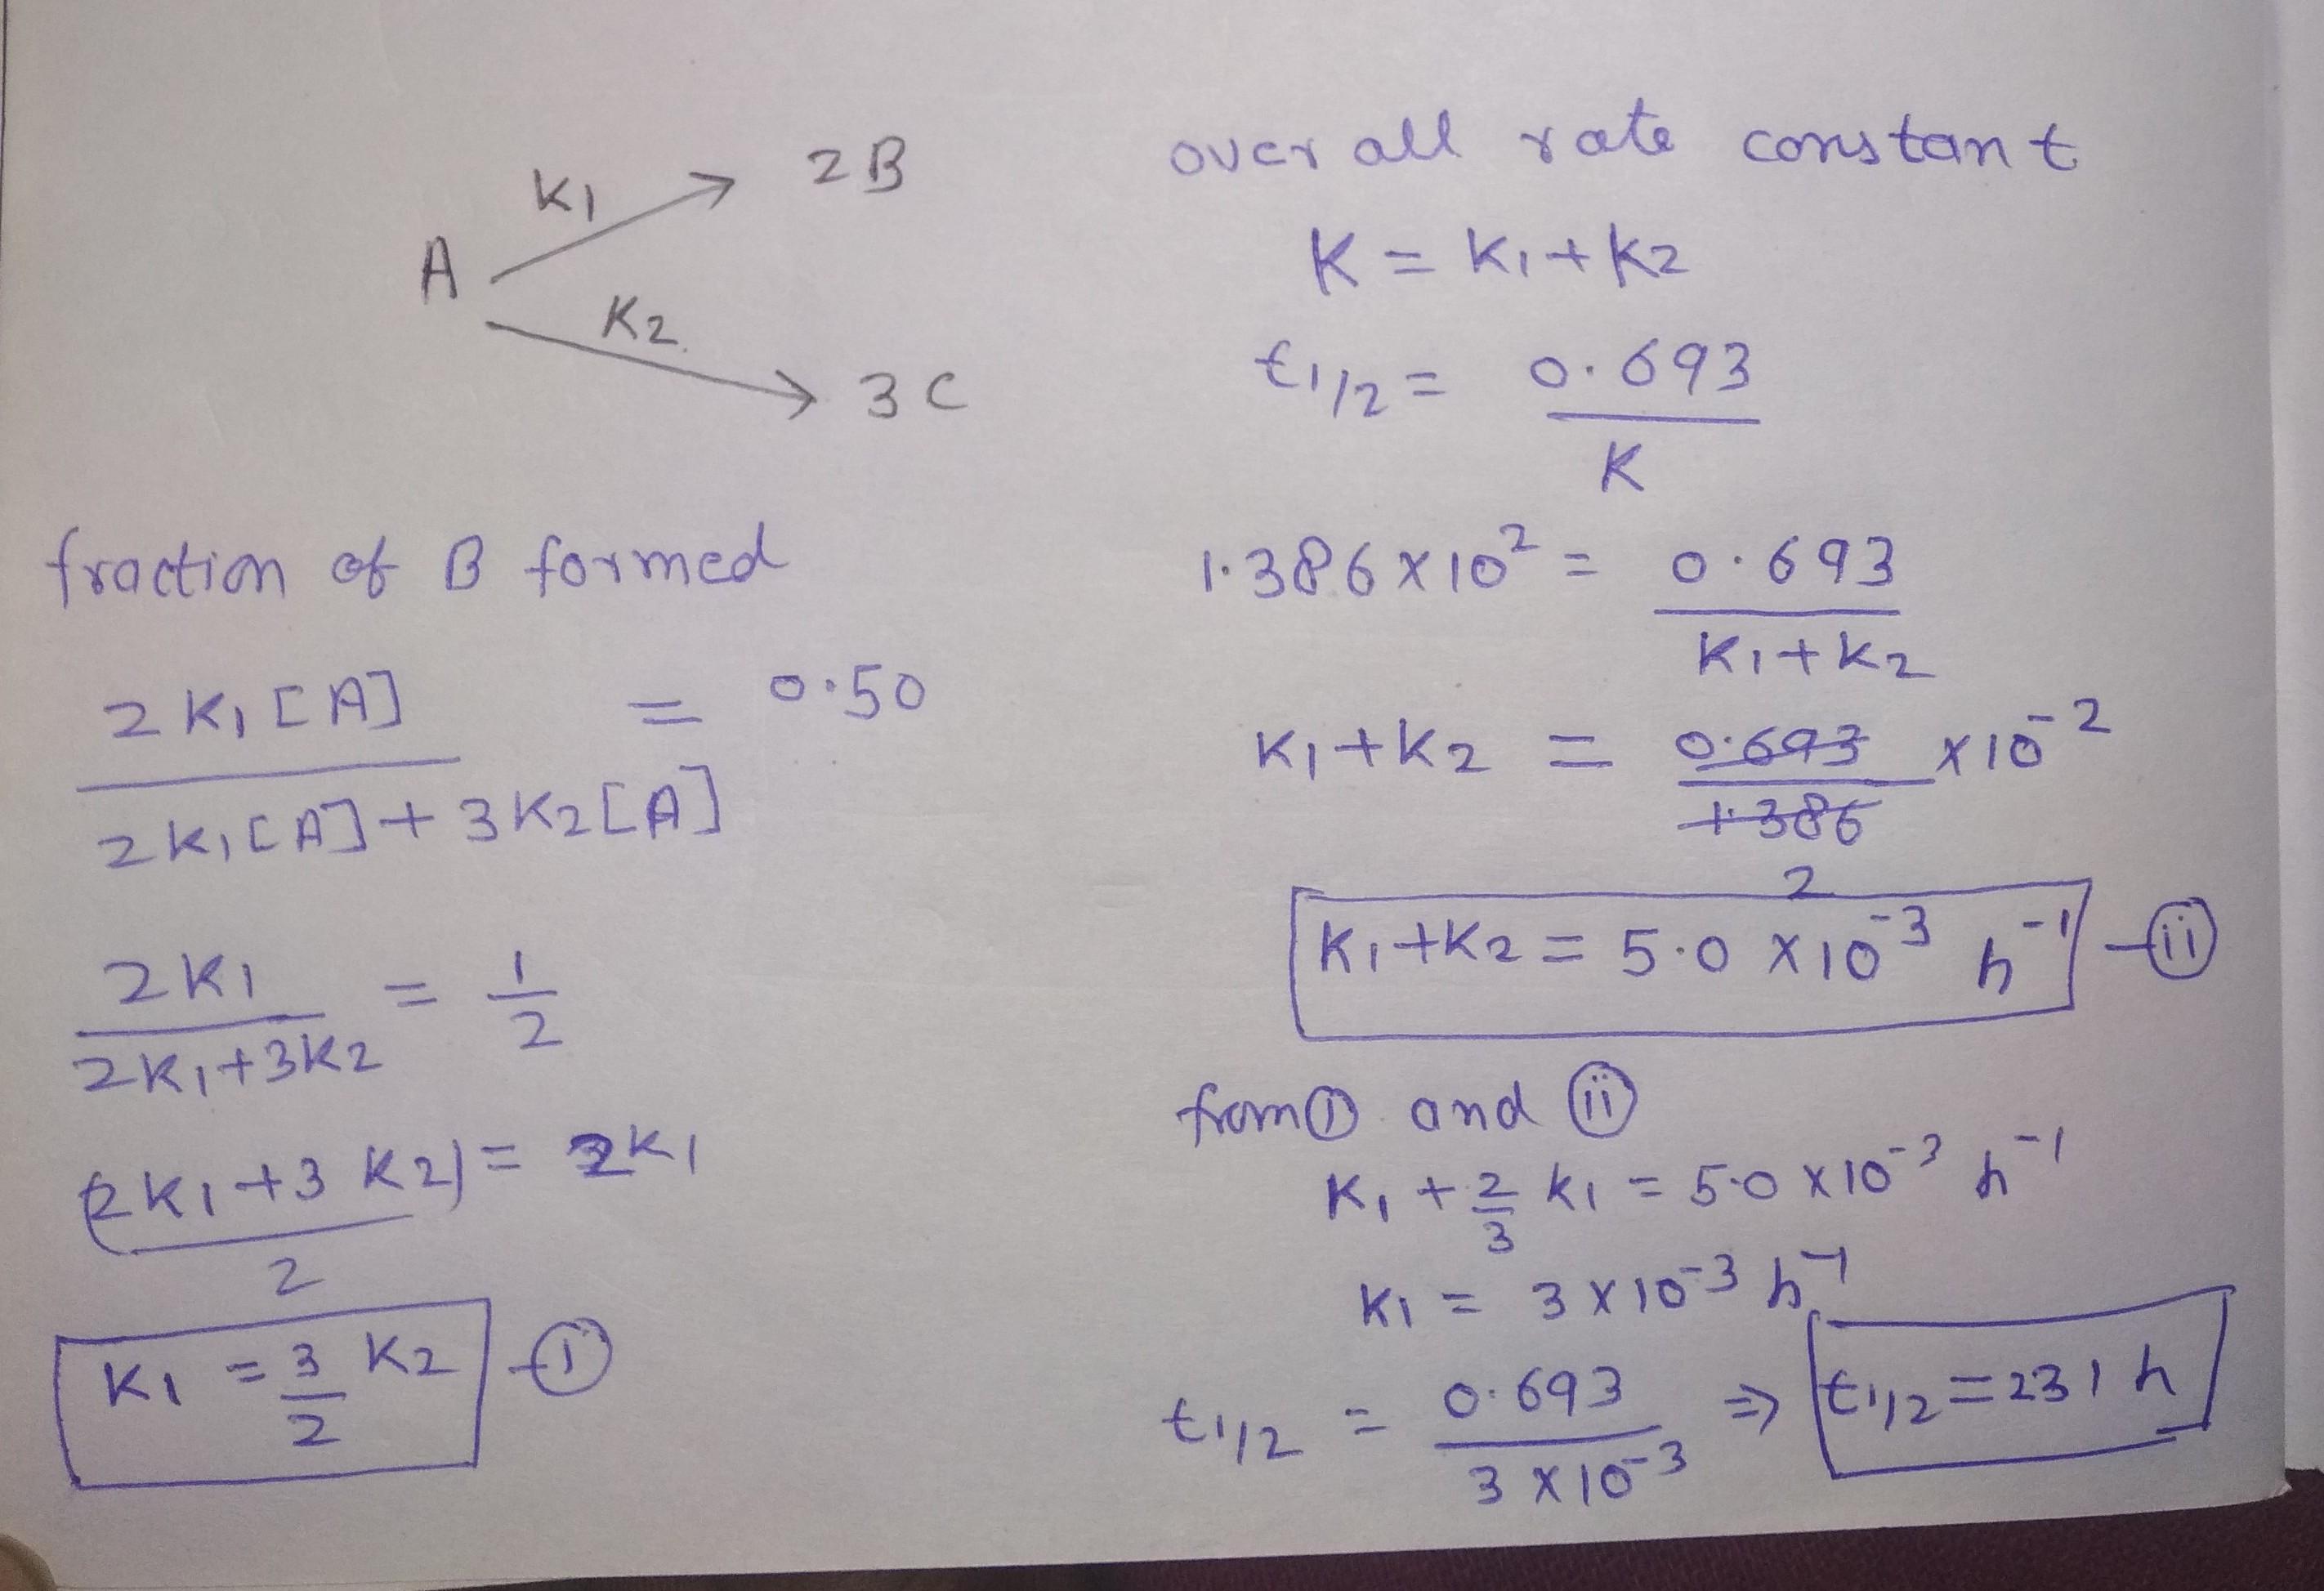 K1 2B
A
K2
3C
fraction of B formed
2K1[A] = 0.50
2K1[A]+3K2[A]
2K1 = 1
2K1+3K2 2
(2K1+3K2) = 2K1
2
K1 = 3 K2 -(i)
2
over all rate constant
K = K1+K2
t1/2 = 0.693
K
1.386×10² = 0.693
K1+K2
K1+K2 = 0.693 ×10⁻²
1.386
2
K1+K2 = 5.0 ×10⁻³ h⁻¹ -(ii)
from (i) and (ii)
K1 + 2/3 K1 = 5.0 ×10⁻³ h⁻¹
K1 = 3×10⁻³ h⁻¹
t1/2 = 0.693 ⇒ t1/2 = 231 h
3×10⁻³